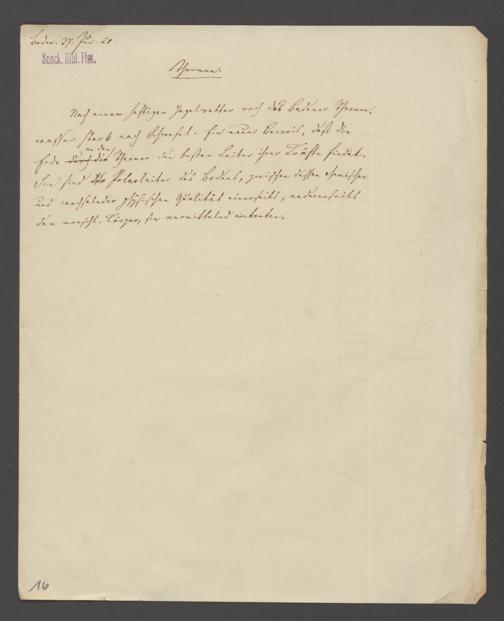 Baden. Juni. 28.
Senck. Bibl. Ffm.
Thermen.
Nach einem heftigen Hagelwetter roch das Badener Thermal-
wasser stark nach Schwefel. Ein neuer Beweis, daß die
Erde an den Thermen die besten Leiter ihrer Kräfte findet.
Sie sind die Polarleiter des Bodens, zwischen dessen chemischer
und wechselnder physischen Qualität einerseits, andererseits
den menschl. Körper, sie vermittelnd eintreten.
16